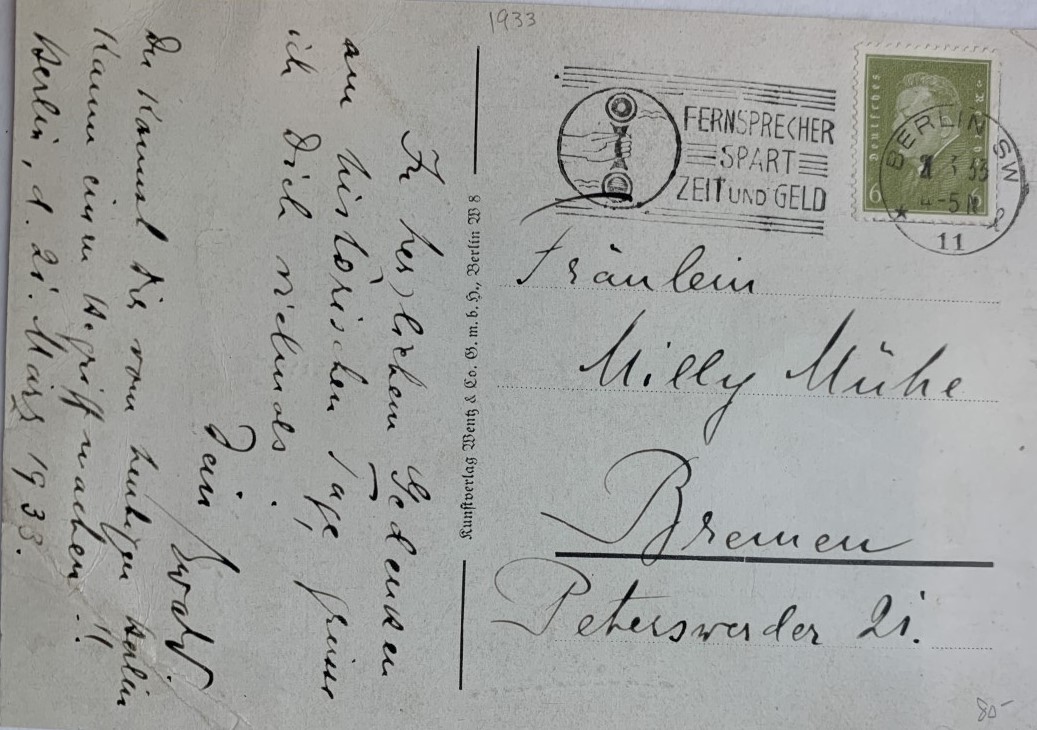 1933
FERNSPRECHER
SPART
ZEIT UND GELD
Deutsches
6
6
BERLIN SW
3 33
4-5 N
11
Fräulein
Milly Mühe
Bremen
Peterswerder 21.
Kunstverlag Wentz & Co. G. m. b. H., Berlin W 8
In herzlichem Gedenken
am historischen Tage, grüsse
ich Dich vielmals.
Dein Ewald.
Du kannst Dir vom heutigen Berlin
kaum einen Begriff machen!!
Berlin, d. 21. März 1933.
80-